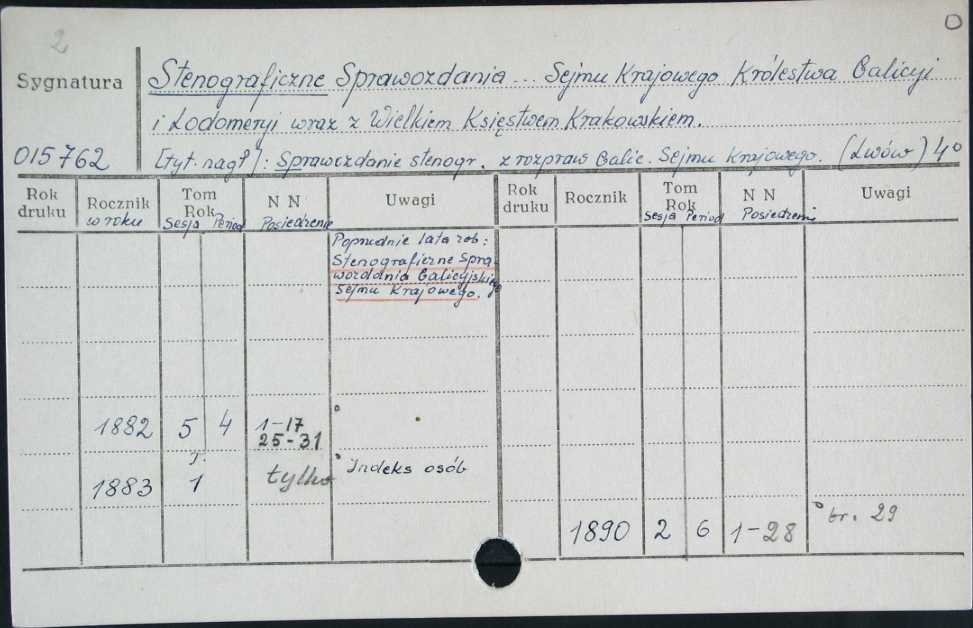 2
O
Sygnatura
Stenograficzne Sprawozdania... Sejmu Krajowego Królestwa Galicyi
i Lodomeryi wraz z Wielkiem Księstwem Krakowskiem.
015762
[tyt. nagł]: Sprawozdanie stenogr. z rozpraw Galic. Sejmu Krajowego. (Lwów) 4°
Rok druku
Rocznik w roku
Tom Rok Sesja Period
N N Posiedzenie
Uwagi
Rok druku
Rocznik
Tom Rok Sesja Period
N N Posiedzenie
Uwagi
Poprzednie lata zob:
Stenograficzne Spra-
wozdania Galicyjskiego
Sejmu Krajowego.
1882 5 4 1-17
25-31
1883 1 tylko Indeks osób
1890 2 6 1-28 br. 29